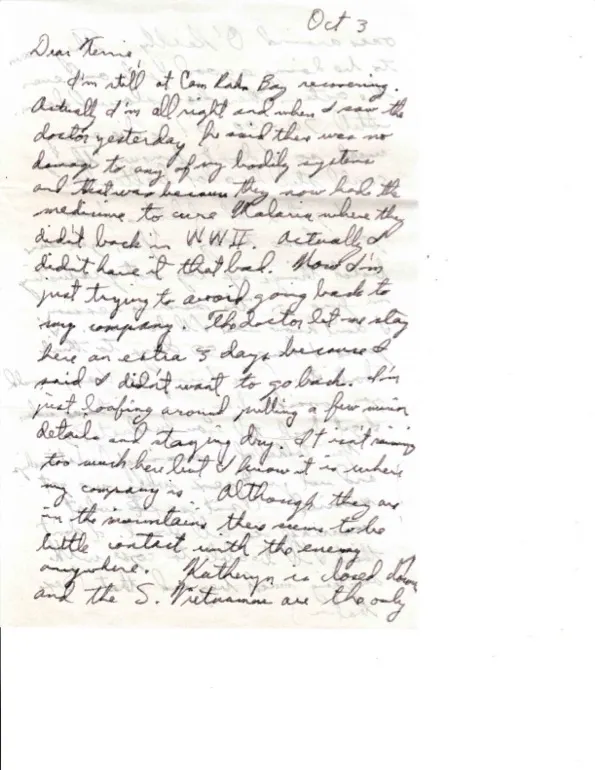 Oct 3
Dear Kerrie,
I'm still at Cam Rahn Bay recovering.
Actually I'm all right and when I saw the
doctor yesterday he said there was no
damage to any of my bodily systems
and that was because they now had the
medicine to cure Malaria where they
didn't back in WWII. Actually I
didn't have it that bad. Now I'm
just trying to avoid going back to
my company. The doctor let me stay
here an extra 3 days because I
said I didn't want to go back. I'm
just loafing around pulling a few minor
details and staying dry. It isn't raining
too much here but I know it is where
my company is. Although they are
in the mountains there seems to be
little contact with the enemy
anywhere. Katheryn is closed down
and the S. Vietnamese are the only